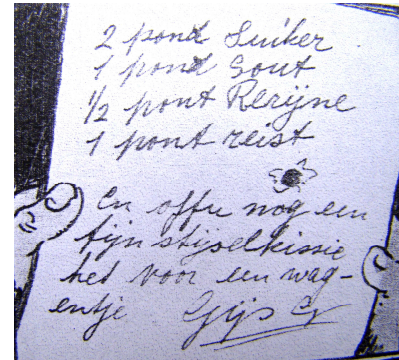 2 pond Suiker
1 pond Sout
1/2 pont Rezijne
1 pont reist
En offu nog een
fijn stijselkissie
het voor een wag-
entje Gijs G